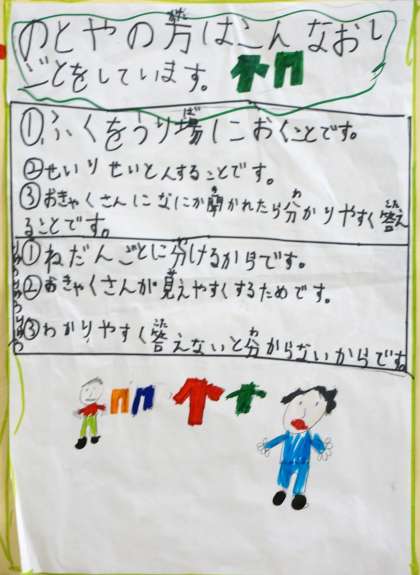 のとやの方はこんなおし
ごとをしています。
①ふくをうり場におくことです。
②せいりせいとんすることです。
③おきゃくさんになにか聞かれたら分かりやすく答え
ることです。
りゆう ①ねだんごとに分けるからです。
りゆう ②おきゃくさんが見えやすくするためです。
りゆう ③わかりやすく答えないと分からないからです